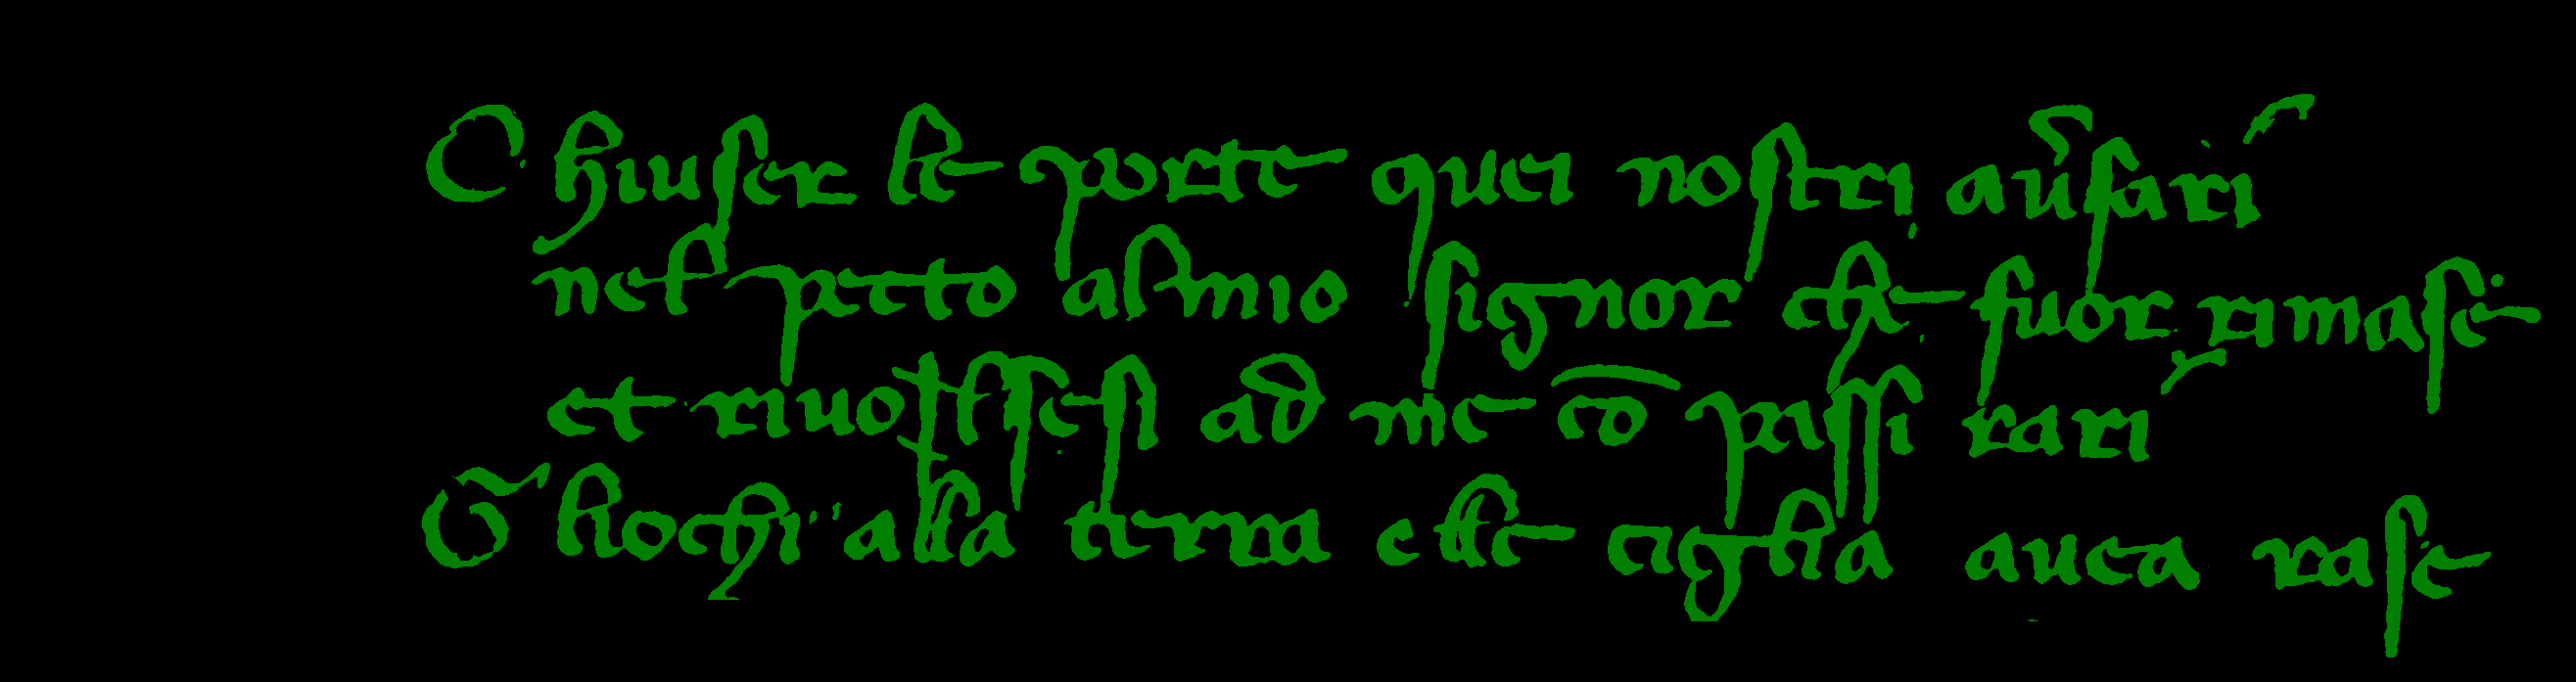 Chiuser le porte quei nostri auḟsari
nel petto almio signor che fuor rimase
et riuolsesi ad me cō passi rari
Gliochi alla terra elle ciglia auea rase